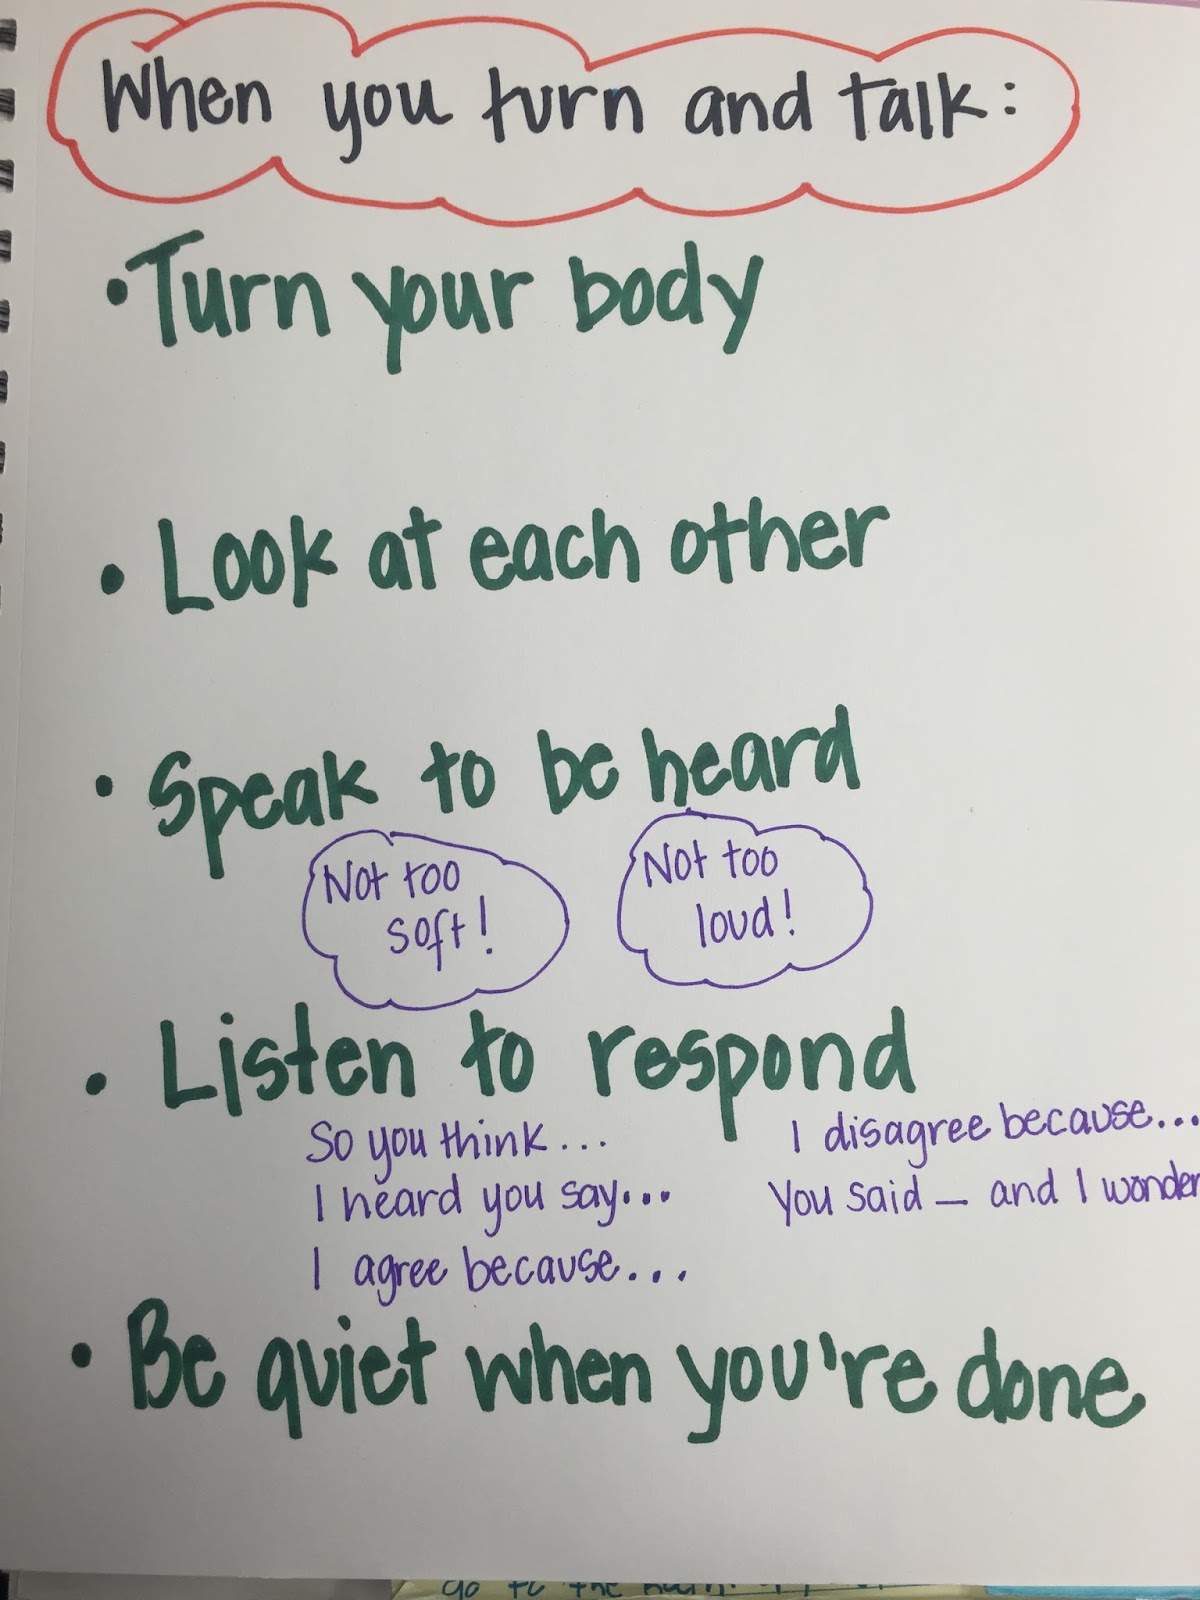 When you turn and talk:
• Turn your body
• Look at each other
• Speak to be heard
Not too
soft!
Not too
loud!
• Listen to respond
So you think...
I heard you say...
I agree because...
I disagree because...
You said — and I wonder
• Be quiet when you're done
go to the